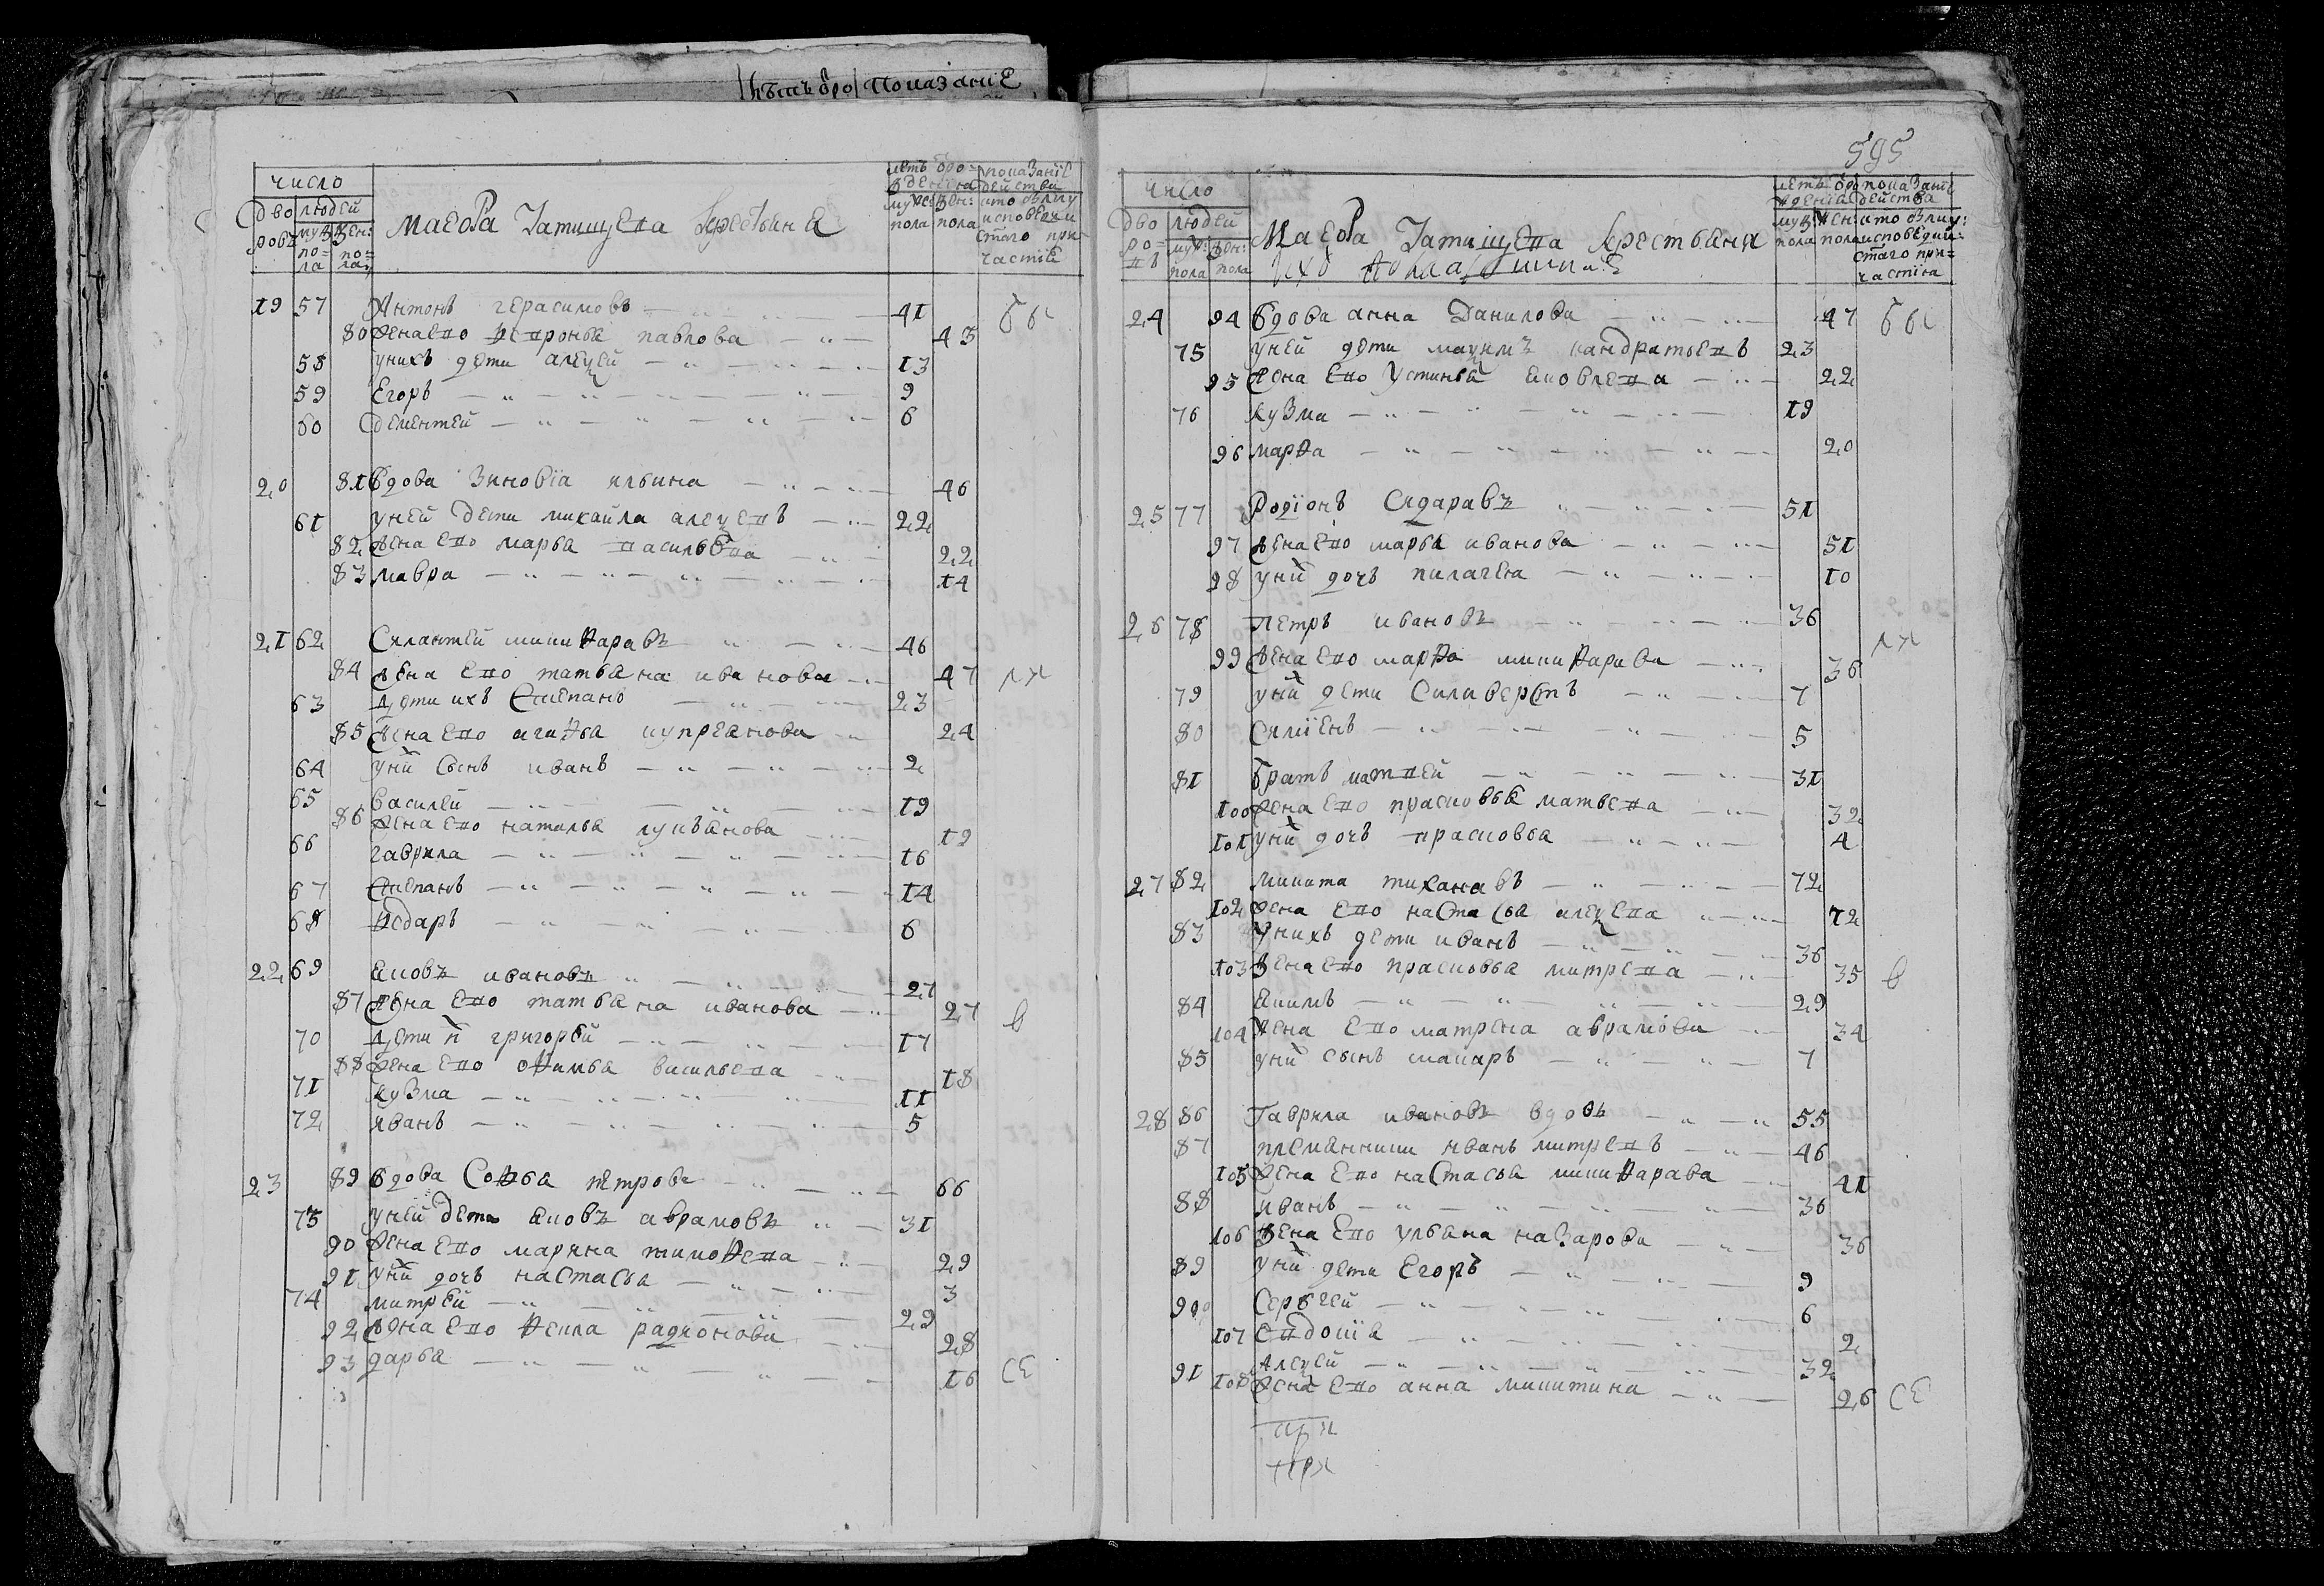 показание
число
дворовъ
людей
муж: пола
жен: пола
маеора Татищева крестьяне
летъ от рождения
муже: пола
жен: пола
показание действа
кто былъ у исповеди и святаго причастия
19 57 Антонъ герасимовъ 41 бы
80 жена ево февронья павлова 43
58 у нихъ дети алексей 13
59 Егоръ 9
60 дементей 6
20 81 вдова Зиновïа ильина 46
61 у ней дети михайла алексеевъ 22
82 жена ево марья васильева 22
83 мавра 14
21 62 Силантей никифоравъ 46
84 жена ево татьяна иванова 47 ли
63 дети ихъ Степанъ 23
85 жена ево агафья купреанова 24
64 у них сынъ иванъ 2
65 василей 19
86 жена ево наталья лукьянова 19
66 гаврила 16
67 Степанъ 14
68 федаръ 6
22 69 яковъ ивановъ 27
87 жена ево татьяна иванова 27 в
70 дети их григорей 17
88 жена ево офимья васильева 18
71 кузма 11
72 иванъ 5
23 89 вдова Софья петрова 66
73 у ней дети яковъ аврамовъ 31
90 жена ево марина тимофева 29
91 у них дочь настасья 3
74 митрей 29
92 жена ево фекла радионова 28
93 дарья 16 се
595
число
дворовъ
людей
муж: пола
жен: пола
Маеора Татищева крестьяня
летъ от рождениа
муж: пола
жен: пола
показание действа
кто былъ у исповеди и святаго причастиа
24 94 вдова анна Данилова 47 бы
75 у ней дети макимъ кандратьевъ 23
95 жена ево Устинья яковлева 22
76 кузма 19
96 марфа 20
25 77 Родïонъ Сидаравъ 51
97 жена ево марья иванова 51
98 у них дочь пилагея 10
26 78 петръ ивановъ 36 ли
99 жена ево марфа никифарава 36
79 у них дети Силиверстъ 7
80 Симïенъ 5
81 братъ матвей 31
100 жена ево прасковья матвева 32
101 у них дочь прасковья 4
27 82 никита тиханавъ 72
102 жена ево настасья алексева 72
83 У нихъ дети иванъ 36
103 жена ево прасковья митрева 35 в
84 якимъ 29
104 жена ево матрена аврамова 34
85 у них сынъ макаръ 7
28 86 Гаврила ивановъ вдовъ 55
87 племянники иванъ митревъ 46
105 жена ево настасья никифарава 41
88 иванъ 36
106 жена ево ульяна назарова 36
89 у них дети Егоръ 9
90 Сергей 6
107 евдокïя 2
91 Алексей 32
108 жена ево анна никитина 26 се